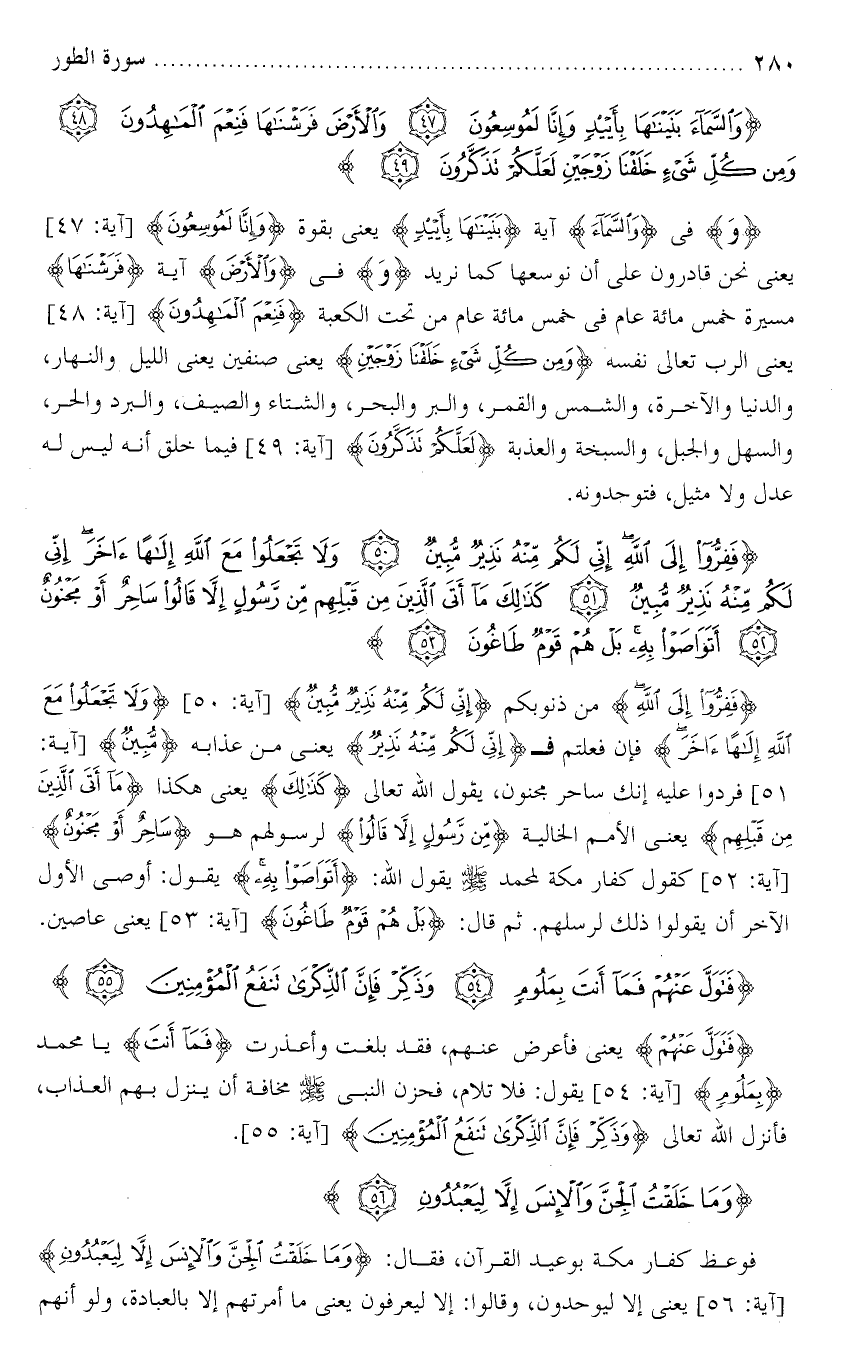 ٢٨٠ ........................................................................ سورة الطور
﴿وَٱلسَّمَآءَ بَنَيۡنَٰهَا بِأَيۡيْدٖ وَإِنَّا لَمُوسِعُونَ ٤٧ وَٱلۡأَرۡضَ فَرَشۡنَٰهَا فَنِعۡمَ ٱلۡمَٰهِدُونَ ٤٨
وَمِن كُلِّ شَيۡءٍ خَلَقۡنَا زَوۡجَيۡنِ لَعَلَّكُمۡ تَذَكَّرُونَ ٤٩ ﴾
﴿وَ﴾ فى ﴿وَٱلسَّمَآءَ﴾ آية ﴿بَنَيۡنَٰهَا بِأَيۡيْدٖ﴾ يعنى بقوة ﴿وَإِنَّا لَمُوسِعُونَ﴾ [آية: ٤٧]
يعنى نحن قادرون على أن نوسعها كما نريد ﴿وَ﴾ فى ﴿وَٱلۡأَرۡضَ﴾ آية ﴿فَرَشۡنَٰهَا﴾
مسيرة خمس مائة عام فى خمس مائة عام من تحت الكعبة ﴿فَنِعۡمَ ٱلۡمَٰهِدُونَ﴾ [آية: ٤٨]
يعنى الرب تعالى نفسه ﴿وَمِن كُلِّ شَيۡءٍ خَلَقۡنَا زَوۡجَيۡنِ﴾ يعنى صنفين يعنى الليل والنهار،
والدنيا والآخرة، والشمس والقمر، والبر والبحر، والشتاء والصيف، والبرد والحر،
والسهل والجبل، والسبخة والعذبة ﴿لَعَلَّكُمۡ تَذَكَّرُونَ﴾ [آية: ٤٩] فيما خلق أنه ليس له
عدل ولا مثيل، فتوحدونه.
﴿فَفِرُّوٓاْ إِلَى ٱللَّهِۖ إِنِّي لَكُم مِّنۡهُ نَذِيرٞ مُّبِينٞ ٥٠ وَلَا تَجۡعَلُواْ مَعَ ٱللَّهِ إِلَٰهًا ءَاخَرَۖ إِنِّي
لَكُم مِّنۡهُ نَذِيرٞ مُّبِينٞ ٥١ كَذَٰلِكَ مَآ أَتَى ٱلَّذِينَ مِن قَبۡلِهِم مِّن رَّسُولٍ إِلَّا قَالُواْ سَاحِرٌ أَوۡ مَجۡنُونٌ
٥٢ أَتَوَاصَوۡاْ بِهِۦۚ بَلۡ هُمۡ قَوۡمٞ طَاغُونَ ٥٣ ﴾
﴿فَفِرُّوٓاْ إِلَى ٱللَّهِۖ﴾ من ذنوبكم ﴿إِنِّي لَكُم مِّنۡهُ نَذِيرٞ مُّبِينٞ﴾ [آية: ٥٠] ﴿وَلَا تَجۡعَلُواْ مَعَ
ٱللَّهِ إِلَٰهًا ءَاخَرَۖ﴾ فإن فعلتم فـ﴿إِنِّي لَكُم مِّنۡهُ نَذِيرٞ﴾ يعنى من عذابه ﴿مُّبِينٞ﴾ [آية:
٥١] فردوا عليه إنك ساحر مجنون، يقول الله تعالى ﴿كَذَٰلِكَ﴾ يعنى هكذا ﴿مَآ أَتَى ٱلَّذِينَ
مِن قَبۡلِهِم﴾ يعنى الأمم الخالية ﴿مِّن رَّسُولٍ إِلَّا قَالُواْ﴾ لرسولهم هو ﴿سَاحِرٌ أَوۡ مَجۡنُونٌ﴾
[آية: ٥٢] كقول كفار مكة لمحمد ﷺ يقول الله: ﴿أَتَوَاصَوۡاْ بِهِۦۚ﴾ يقول: أوصى الأول
الآخر أن يقولوا ذلك لرسلهم. ثم قال: ﴿بَلۡ هُمۡ قَوۡمٞ طَاغُونَ﴾ [آية: ٥٣] يعنى عاصين.
﴿فَتَوَلَّ عَنۡهُمۡ فَمَآ أَنتَ بِمَلُومٖ ٥٤ وَذَكِّرۡ فَإِنَّ ٱلذِّكۡرَىٰ تَنفَعُ ٱلۡمُؤۡمِنِينَ ٥٥ ﴾
﴿فَتَوَلَّ عَنۡهُمۡ﴾ يعنى فأعرض عنهم، فقد بلغت وأعذرت ﴿فَمَآ أَنتَ﴾ يا محمد
﴿بِمَلُومٖ﴾ [آية: ٥٤] يقول: فلا تلام، فحزن النبى ﷺ مخافة أن ينزل بهم العذاب،
فأنزل الله تعالى ﴿وَذَكِّرۡ فَإِنَّ ٱلذِّكۡرَىٰ تَنفَعُ ٱلۡمُؤۡمِنِينَ﴾ [آية: ٥٥].
﴿وَمَا خَلَقۡتُ ٱلۡجِنَّ وَٱلۡإِنسَ إِلَّا لِيَعۡبُدُونِ ٥٦ ﴾
فوعظ كفار مكة بوعيد القرآن، فقال: ﴿وَمَا خَلَقۡتُ ٱلۡجِنَّ وَٱلۡإِنسَ إِلَّا لِيَعۡبُدُونِ﴾
[آية: ٥٦] يعنى إلا ليوحدون، وقالوا: إلا ليعرفون يعنى ما أمرتهم إلا بالعبادة، ولو أنهم